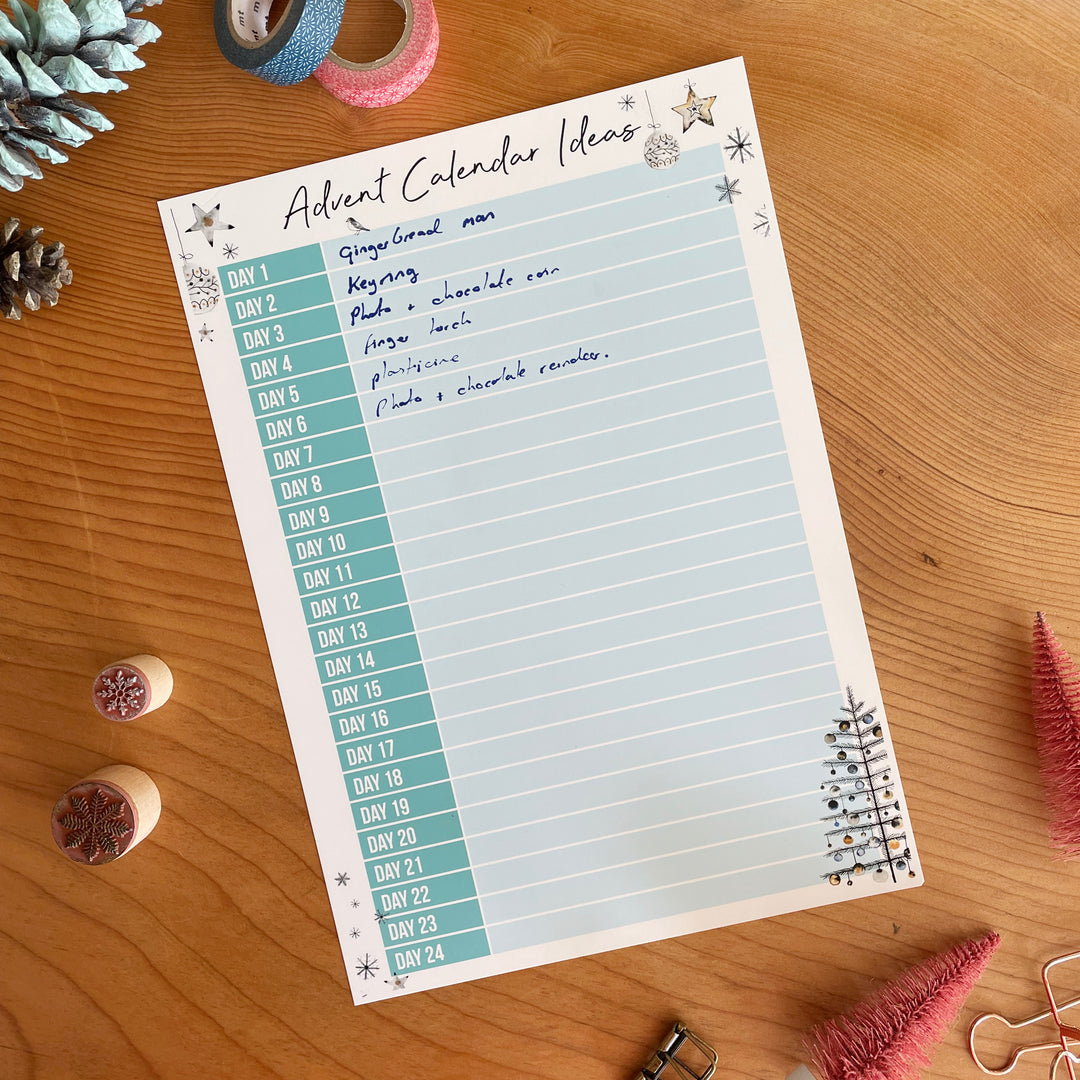 mt
mt
Advent Calendar Ideas
DAY 1 Gingerbread man
DAY 2 Keyring
DAY 3 Photo + chocolate coin
DAY 4 finger torch
DAY 5 plasticine
DAY 6 Photo + chocolate reindeer.
DAY 7
DAY 8
DAY 9
DAY 10
DAY 11
DAY 12
DAY 13
DAY 14
DAY 15
DAY 16
DAY 17
DAY 18
DAY 19
DAY 20
DAY 21
DAY 22
DAY 23
DAY 24